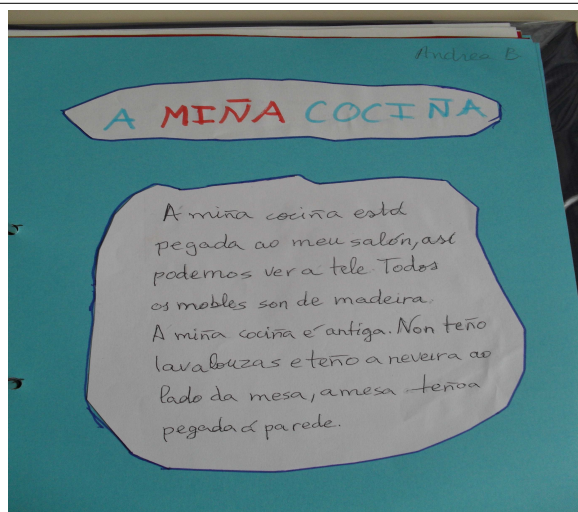 Andrea B
A MIÑA COCIÑA
A miña cociña está
pegada ao meu salón, así
podemos ver a tele. Todos
os mobles son de madeira.
A miña cociña é antiga. Non teño
lavalouzas e teño a neveira ao
lado da mesa, a mesa teñoa
pegada á parede.